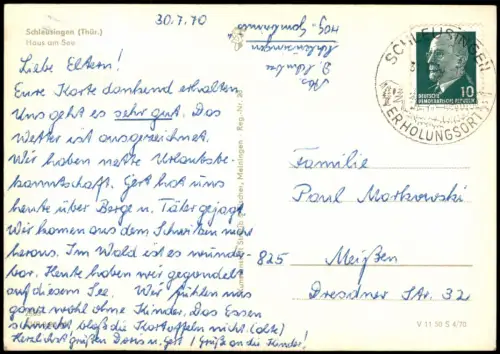 Schleusingen (Thür.)
Haus am See
30.7.70
Liebe Eltern!
Eure Karte dankend erhalten.
Uns geht es sehr gut. Das
Wetter ist ausgezeichnet.
Wir haben nette Urlaubsbe-
kanntschaft. Gert hat uns
heute über Berge u. Täler gejagt.
Wir kommen aus dem Schwitzen nicht
heraus. Im Wald ist es wunder-
bar. Heute haben wir gegondelt
auf diesem See. Wir fühlen uns
ganz wohl ohne Kinder. Das Essen
schmeckt bloß die Kartoffeln nicht (alte)
Herzlichst grüßen Doris u. Gert 1 Grüße an die Kinder!
Meiningen Reg.-Nr.
SCHLEUSINGEN
ERHOLUNGSORT
10
DEUTSCHE
DEMOKRATISCHE REPUBLIK
Familie
Paul Markowski
825 Meißen
Dresdner Str. 32
V 11 50 S 4/70